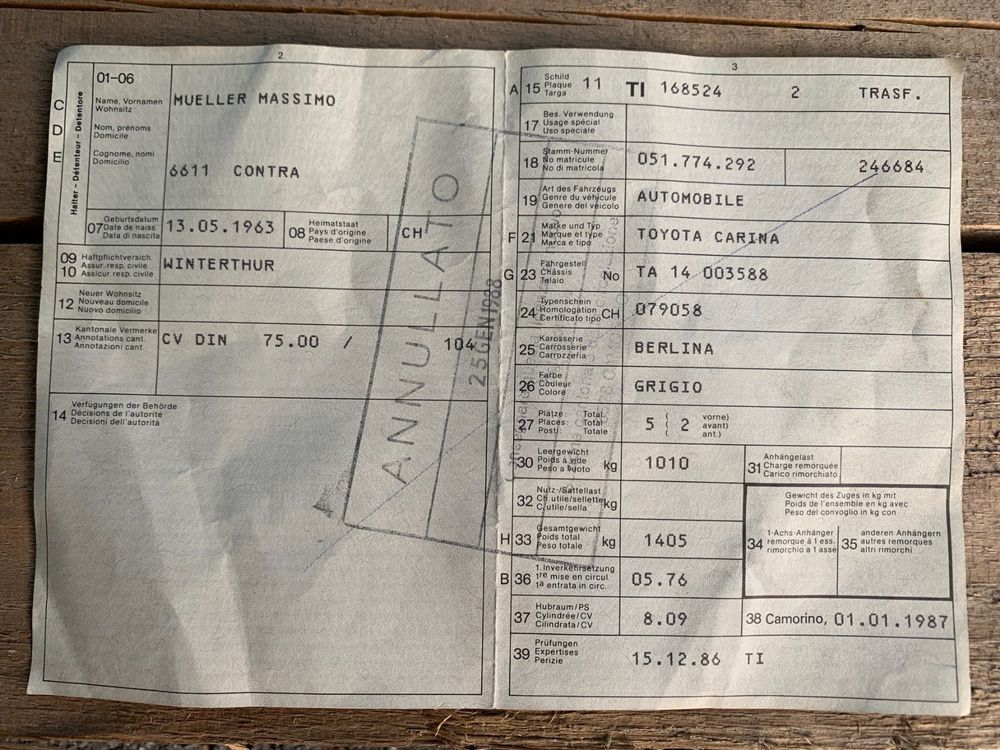 2
01-06
C
D
E
Halter - Détenteur - Detentore
Name, Vornamen
Wohnsitz
Nom, prénoms
Domicile
Cognome, nomi
Domicilio
MUELLER MASSIMO
6611 CONTRA
07 Geburtsdatum
Date de naiss
Data di nascita
13.05.1963
08 Heimatstaat
Pays d'origine
Paese d'origine
CH
09
10
Haftpflichtversich.
Assur. resp. civile
Assicur. resp. civile
WINTERTHUR
12 Neuer Wohnsitz
Nouveau domicile
Nuovo domicilio
13 Kantonale Vermerke
Annotations cant.
Annotazioni cant.
CV DIN 75.00 / 104
14 Verfügungen der Behörde
Décisions de l'autorité
Decisioni dell'autorità
ANNULLATO
25 GEN 1988
3
A 15 Schild
Plaque
Targa
11 TI 168524 2 TRASF.
17 Bes. Verwendung
Usage spécial
Uso speciale
18 Stamm-Nummer
No matricule
No di matricola
051.774.292 246684
19 Art des Fahrzeugs
Genre du véhicule
Genere del veicolo
AUTOMOBILE
F 21 Marke und Typ
Marque et type
Marca e tipo
TOYOTA CARINA
G 23 Fahrgestell
Châssis
Telaio
No TA 14 003588
24 Typenschein
Homologation
Certificato tipo
CH 079058
25 Karosserie
Carrosserie
Carrozzeria
BERLINA
26 Farbe
Couleur
Colore
GRIGIO
27 Plätze: Total
Places: Total
Posti: Totale
5 ( 2 vorne)
avant)
ant.)
30 Leergewicht
Poids à vide
Peso a vuoto
kg 1010
31 Anhängelast
Charge remorquée
Carico rimorchiato
32 Nutz-/Sattellast
Ch. utile/sellette
C. utile/sella
kg
Gewicht des Zuges in kg mit
Poids de l'ensemble en kg avec
Peso del convoglio in kg con
H 33 Gesamtgewicht
Poids total
Peso totale
kg 1405
34 1-Achs-Anhänger
remorque à 1 ess.
rimorchio a 1 asse
35 anderen Anhängern
autres remorques
altri rimorchi
B 36 1. Inverkehrsetzung
1re mise en circul.
1a entrata in circ.
05.76
37 Hubraum/PS
Cylindrée/CV
Cilindrata/CV
8.09
38 Camorino, 01.01.1987
39 Prüfungen
Expertises
Perizie
15.12.86 TI